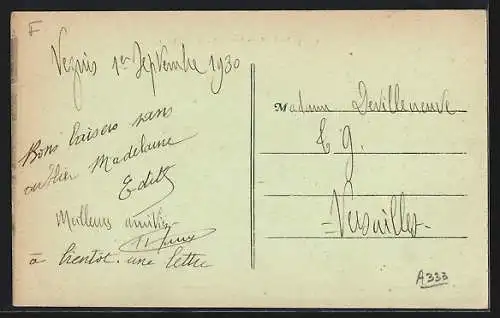 F
1er Septembre 1930
Bons baisers sans
oublier Madelaine
Edith
Meilleures amitiés
à bientot une lettre
Madame Devilleneuve
Versailles
A333